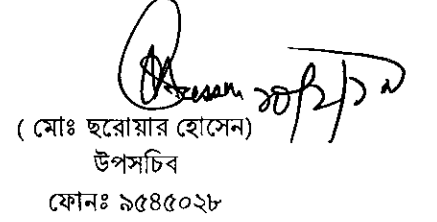 ( মোঃ ছরোয়ার হোসেন)
উপসচিব
ফোনঃ ৯৫৪৫০২৮